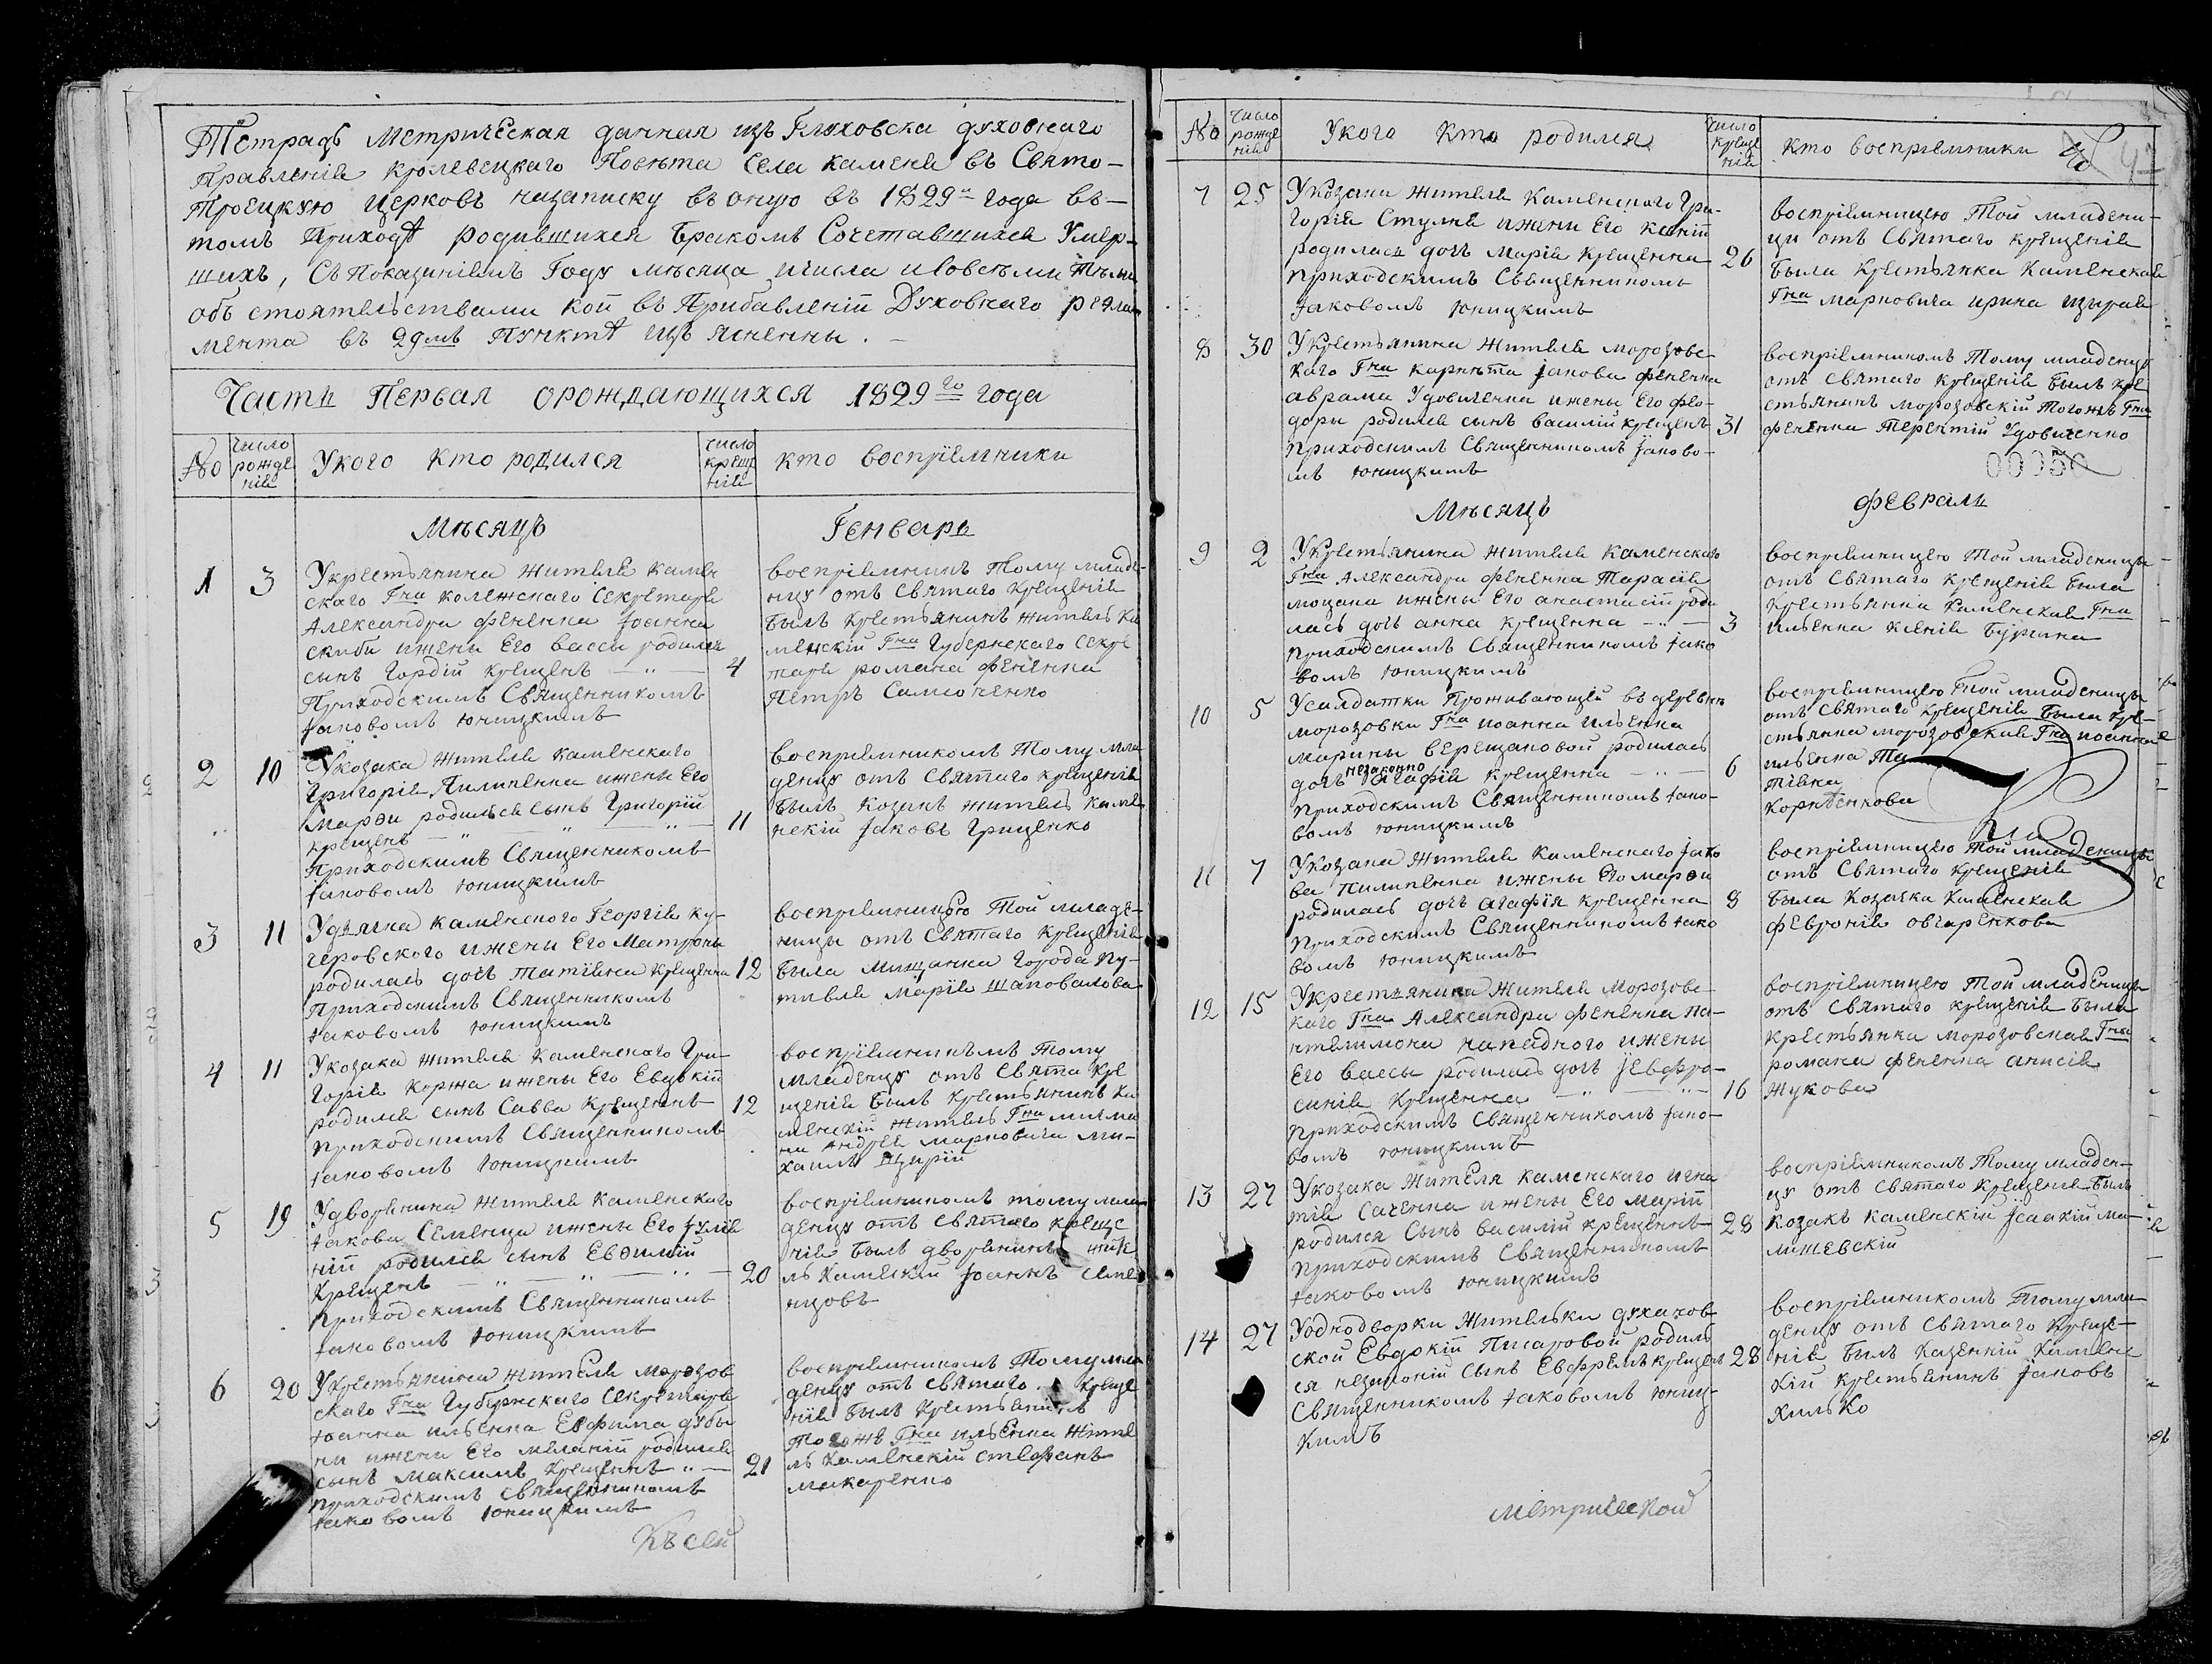 Тетрадь Метрическая данная изъ Глуховска духовнаго
Правленія Кролевецкаго Повѣта Села Каменя въ Свято-
Троецкую Церковь назаписку въ оную въ 1829 года въ-
томъ Приходѣ родившихся Бракомъ Сочетавшихся Умер-
шихъ, Съ Показаніемъ Году мѣсяца ичисла исовсѣми тѣми
объ стоятельствами кои въ Прибавленіи Духовнаго регла
мента въ 29мъ Пунктѣ изъ яснены.
Часть Первая орождающихся 1829го года
№ Число рожде нія Укого кто родился число креще нія кто воспріемники
Мѣсяцъ Генварь
1 3
Укрестьянина жителя камен
скаго Гна колежскаго Секретаря
Александра Фененка Іоанна
скиби ижены Его вассы родился
сынъ Гордій крещенъ
Приходскимъ Священникомъ
Іаковомъ Юницкимъ
4
воспріемникъ Тому младе-
нцу отъ Святаго Крещенія
былъ крестьянинъ житель Ка
менскій Гна Губернскаго Секре
таря романа Фененка
Петръ Самоненко
2 10
Укозака жителя каменскаго
Григорія Пилипенка ижены Его
Марѳи родился сынъ Григорій
крещенъ
Приходскимъ Священникомъ
Іаковомъ Юницкимъ
11
воспріемникомъ Тому мла
денцу отъ Святаго крещенія
былъ козакъ житель камѣ
нскій Іаковъ Гриценко
3 11
Удячка каменского Георгія ку-
черовского ижены Его Матроны
родилась дочь татіяна крещенна
Приходскимъ Священникомъ
Іаковомъ Юницкимъ
12
воспріемницею Той младе-
ницы отъ Святаго крещенія
была Мищанка города Пу-
тивля Марія Шаповалова
4 11
Укозака жителя каменского Гри
горія Коржа ижены Его Евдокіи
родился сынъ Савва крещенъ
Приходскимъ Священникомъ
Іаковомъ Юницкимъ
12
воспріемникомъ Тому
младенцу отъ Свята кре
щенія былъ крестьянинъ ка
менскій житель Гна
Андрея марковича ми-
хаилъ Щирій
5 19
Удворянина жителя каменскаго
Іакова Семенца ижены Его Іуліа
ніи родился сынъ Евѳимій
крещенъ
Приходскимъ Священникомъ
Іаковомъ Юницкимъ
20
воспріемникомъ тому мла
денцу отъ святаго креще
нія былъ дворянинъ жите
ль Каменскій Іоаннъ Семе
нцовъ
6 20
Укрестьянина жителя морозов
скаго Гна Губернскаго Секретаря
Іоанна ильенка Евфима дубы
ни ижены Его меланіи родился
сынъ Максимъ крещенъ
Приходскимъ Священникомъ
Іаковомъ Юницкимъ
21
воспріемникомъ Тому мла
денцу отъ святаго креще
нія былъ крестьянинъ
того жъ Гна ильенка жите
ль каменскій стефанъ
макаренко
Къ сей
№ Число рожде нія Укого кто родился число креще нія кто воспріемники
7 25
Укозака жителя Каменского Гри
горія Стулня ижены Его ксніи
родилась дочь Марія крещенна
Приходскимъ Священникомъ
Іаковомъ Юницкимъ
26
воспріемницею Той младени-
ци отъ Святаго крещенія
была Крестьянка Каменская
Гна марковича ирина щирая
8 30
Укрестьянина жителя морозовс
каго Гна корнета Іакова Фененка
аврама Удовиченка ижены Его фео-
доры родился сынъ василій крещенъ
Приходскимъ Священникомъ Іаково-
мъ Юницкимъ
31
воспріемникомъ Тому младенцу
отъ святаго крещенія былъ кре
стьянинъ морозовскій тогожъ Гна
фененка Терентій Удовиченко
00050
Мѣсяцъ Февраль
9 2
Укрестьянина жителя каменскаго
Гна Александра Фененка Тарасія
моцака ижены Его анастасіи роди
лась дочь анна крещенна
Приходскимъ Священникомъ Іако
вомъ Юницкимъ
3
воспріемницею Той младеницы
отъ Святаго крещенія была
Крестьянка Каменская Гна
ильенка ксенія Бурима
10 5
Усалдатки Проживающей въ деревнѣ
морозовки Гна иоанна ильенка
марины верещаковой родилась
дочь незаконно Агафія крещенна
Приходскимъ Священникомъ Іако-
вомъ Юницкимъ
6
воспріемницею Той младеницы
отъ святаго крещенія была кре-
стьянка морозовская Гна иоанна
ильенка Та
тіяна
Корнѣенкова
11 7
Укозака жителя Каменскаго Іако
ва Пилипенка ижены Его марѳи
родилась дочь агафія крещенна
Приходскимъ Священникомъ Іако
вомъ Юницкимъ
8
воспріемницею Той младеницы
отъ Святаго крещенія
была Козачка Каменская
Февронія овчаренкова
12 15
Укрестьянина жителя Морозовс
каго Гна Александра Фененка па-
нтелимона нападного ижены
Его вассы родилась дочь Јевфро-
синія крещенна
Приходскимъ Священникомъ Іако-
вомъ Юницкимъ
16
воспріемницею Той младеницы
отъ святаго крещенія была
крестьянка морозовская Гна
романа фененка анисія
Жукова
13 27
Укозака жителя Каменскаго игна
тія Саченка ижены Его Маріи
родился сынъ василій крещенъ
Приходскимъ Священникомъ
Іаковомъ Юницкимъ
28
воспріемникомъ Тому младен-
цу отъ святаго крещенія былъ
козакъ каменскій Ісаакій ма-
лишевскій
14 27
Уоднодворки жительки духанов
ской Евдокіи Писаровой родил
ся незаконій сынъ Ефремъ крещенъ
Священникомъ Іаковомъ Юниц-
кимъ
28
воспріемникомъ Тому мла
денцу отъ Святаго креще-
нія былъ казенній Каменс
кій крестьянинъ Іаковъ
Хилько
Метрической